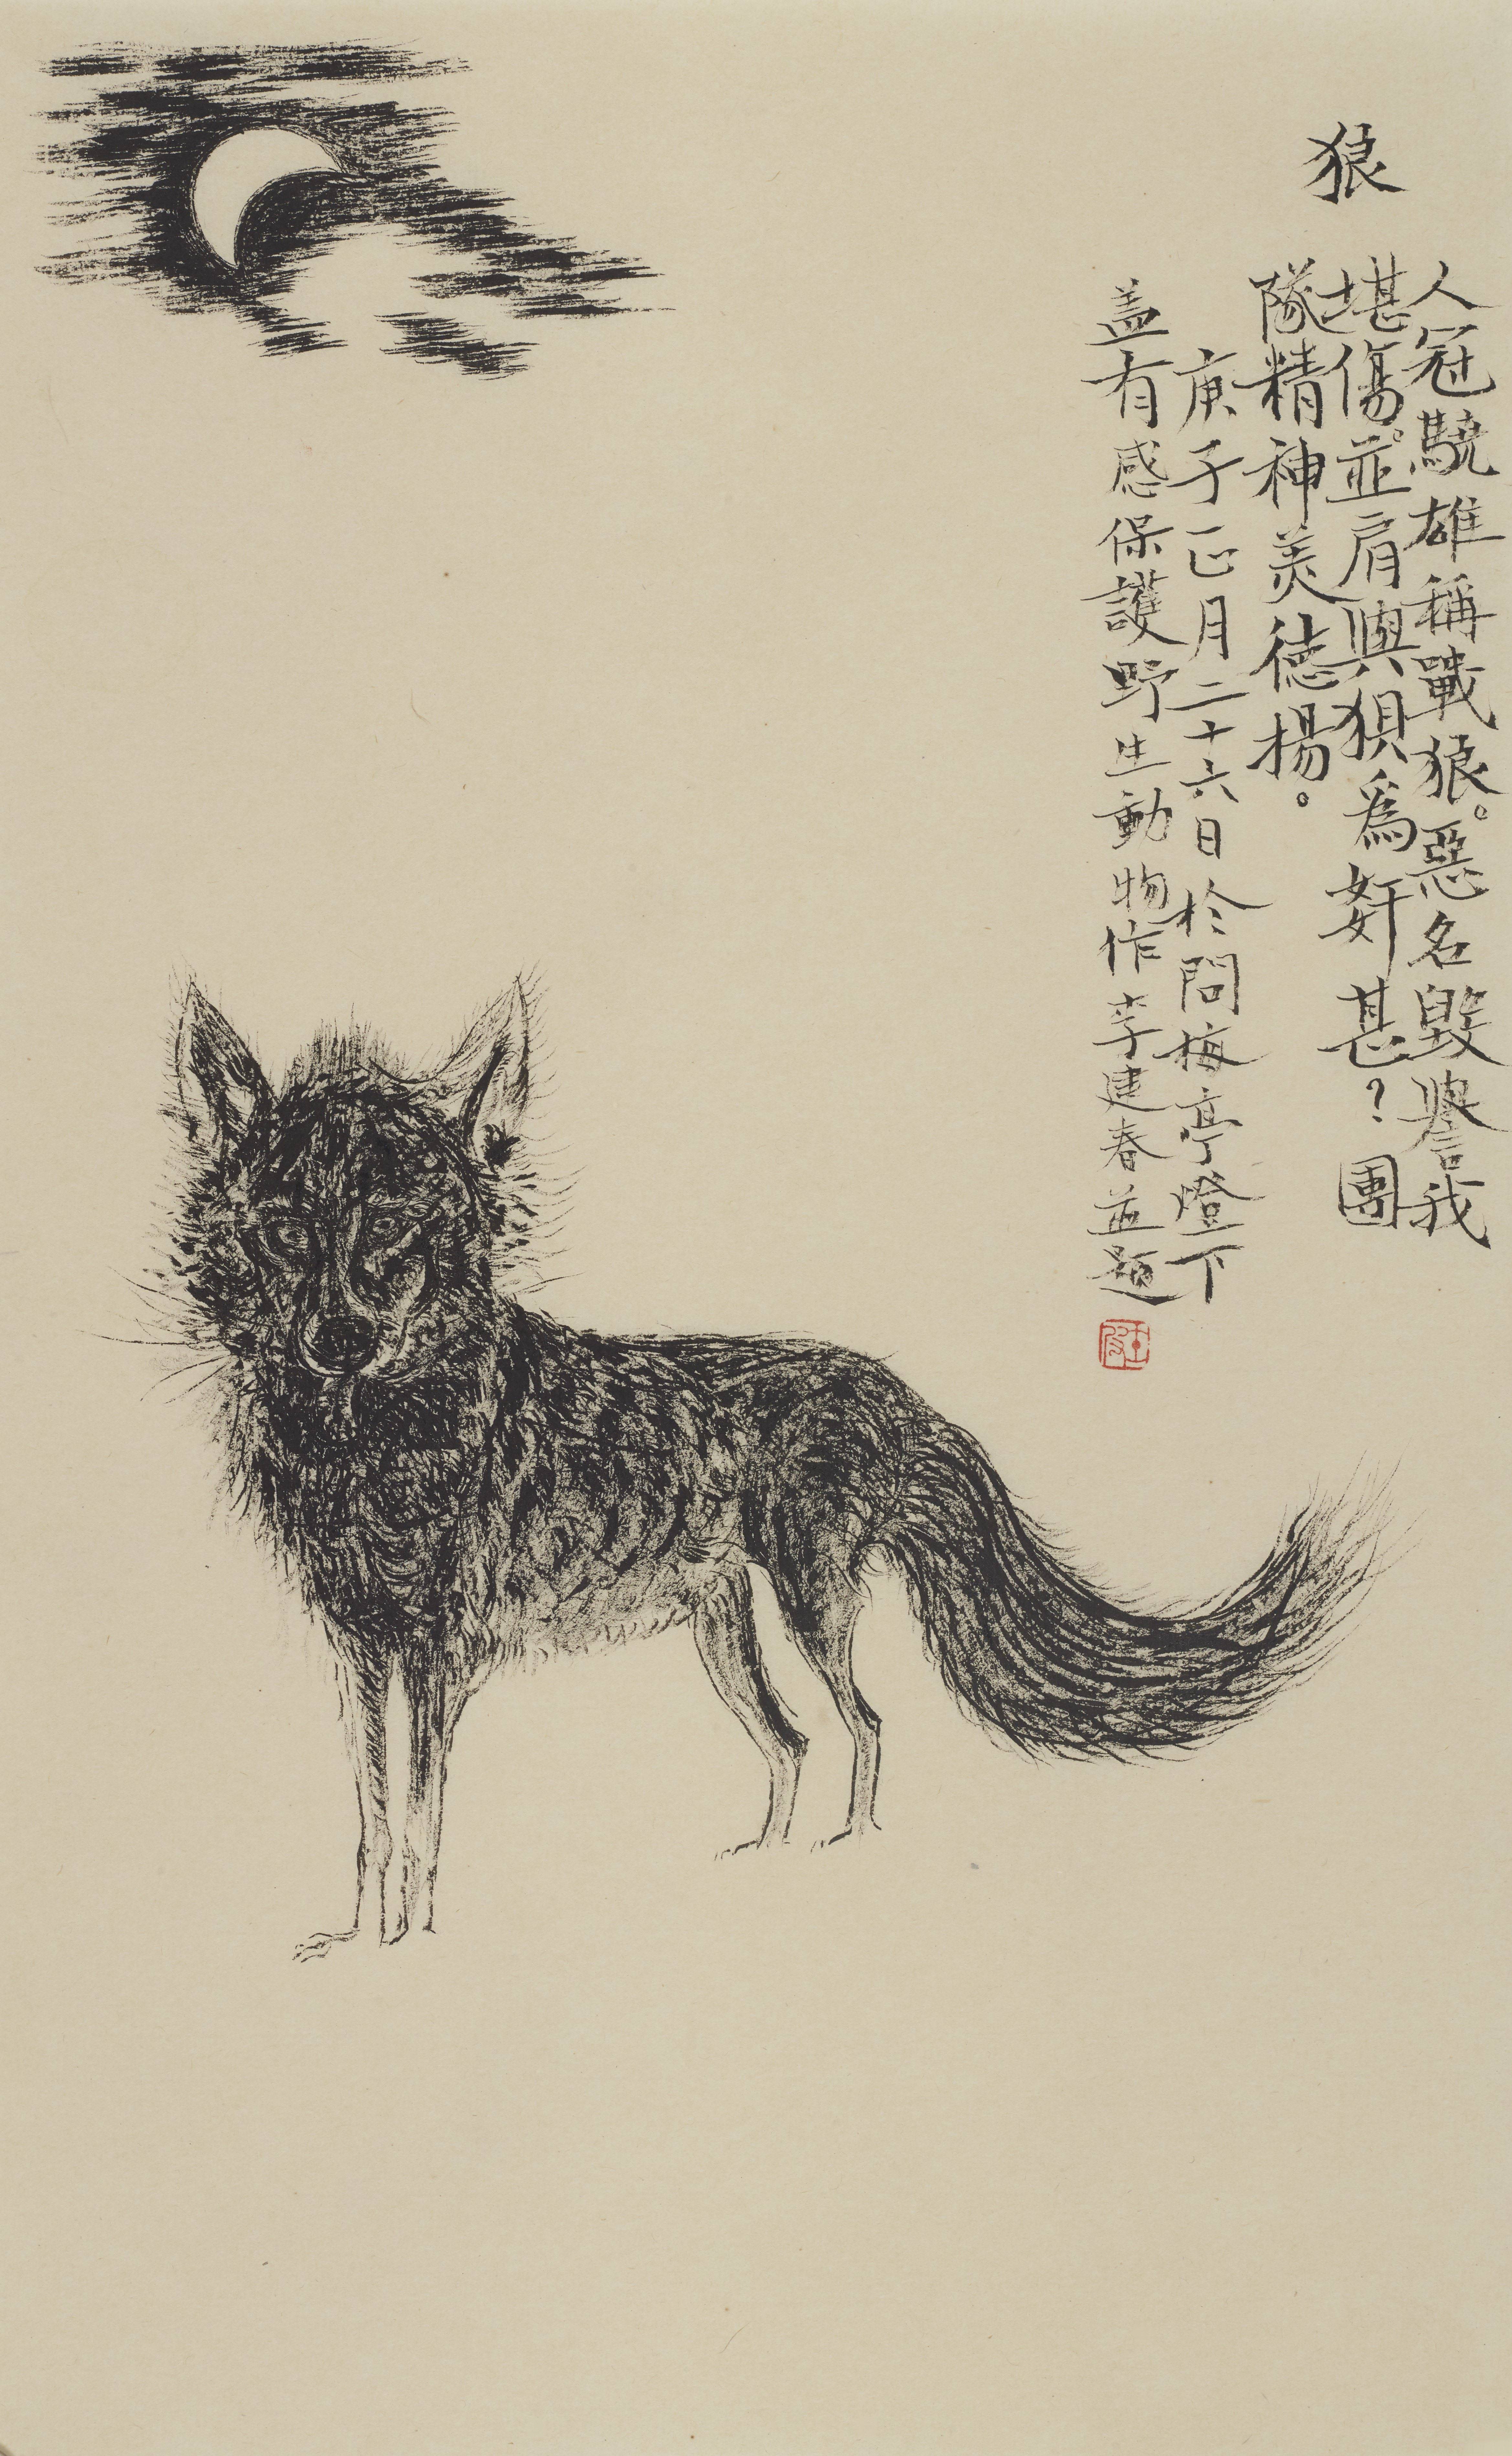 狼
人冠驍雄稱戰狼。惡名毀譽我
堪傷。並肩與狽爲奸甚?團
隊精神美德揚。
庚子正月二十六日於問梅亭燈下
盖有感保護野生動物作李建春並題